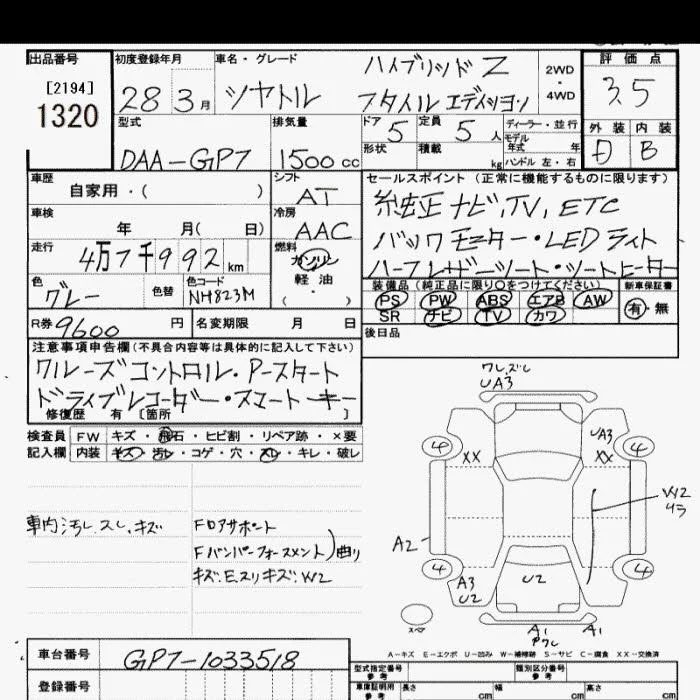 出品番号 初度登録年月 車名・グレード 評価点
[2194] ハイブリッド Z 2WD
1320 28 3月 シャトル スタイルエディション 4WD 3.5
型式 排気量 ドア 定員 ディーラー・並行 外装 内装
5 5人 モデル年式 年
DAA-GP7 1500cc 形状 積載 kg ハンドル 左・右 D B
車歴 シフト セールスポイント (正常に機能するものに限ります)
自家用・( ) AT 純正ナビ, TV, ETC
車検 冷房
年 月( 日) AAC バックモニター・LEDライト
走行 燃料
4万7千992km ガソリン ハーフレザーシート・シートヒーター
色 色替 色コード 軽油 装備品 (純正品に限り○をつけてください) 新車保証書
グレー NH823M ( ・ ) PS PW ABS エアB AW 有・無
R券 9600円 名変期限 月 日 SR ナビ TV カワ
後日品
注意事項申告欄(不具合内容等は具体的に記入して下さい)
クルーズコントロル・Pスタート
ドライブレコーダー・スマートキー
修復歴 有 [箇所 ]
ワレ.ズレ
UA3
検査員 FW キズ・飛石・ヒビ割・リペア跡・×要
記入欄 内装 キズ・汚レ・コゲ・穴・スレ・キレ・破レ
4 UA3 4
XX XX
W2
リラ
車内汚レ.スレ.キズ Fロアサポート
Fバンパーフォースメント)曲リ
キズ.E.スリキズ.W2
A2
4 4
A3 U2
U2
スペア
A1 A1
Pワレ
A-キズ E-エクボ U-凹み W-補修跡 S-サビ C-腐食 XX-交換済
車台番号 GP7-1033518 型式指定番号 参考 類別区分番号 参考
登録番号 車庫証明用 参考 長さ cm 幅 cm 高さ cm